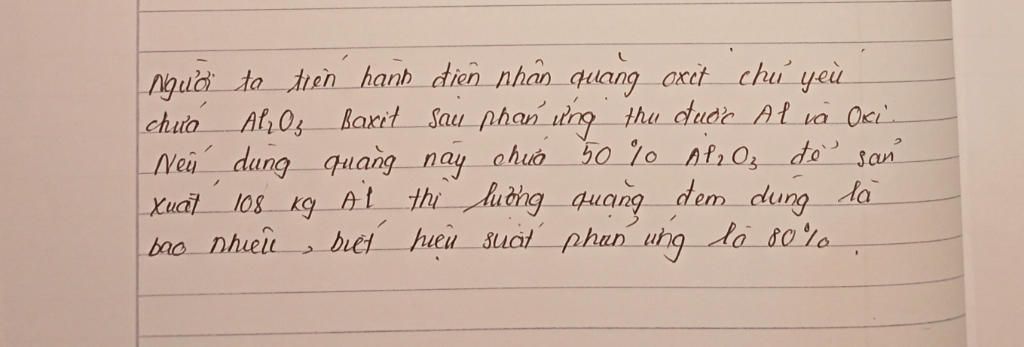 Người ta tiến hành điện phân quặng oxit chủ yếu
chứa Al₂O₃ Baxit sau phản ứng thu được Al và Oxi.
Nếu dùng quặng này chứa 50 % Al₂O₃ để sản
xuất 108 kg Al thì lượng quặng đem dùng là
bao nhiêu, biết hiệu suất phản ứng là 80%.